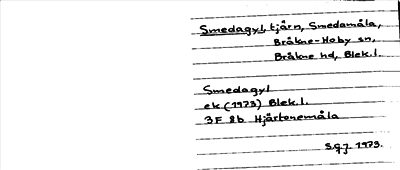 Smedagyl, tjärn, Smedamåla,
Bräkne-Hoby sn,
Bräkne hd, Blek.l.
Smedagyl
ek (1973) Blek.l.
3F 8b Hjärtonemåla
S.G.J. 1973.